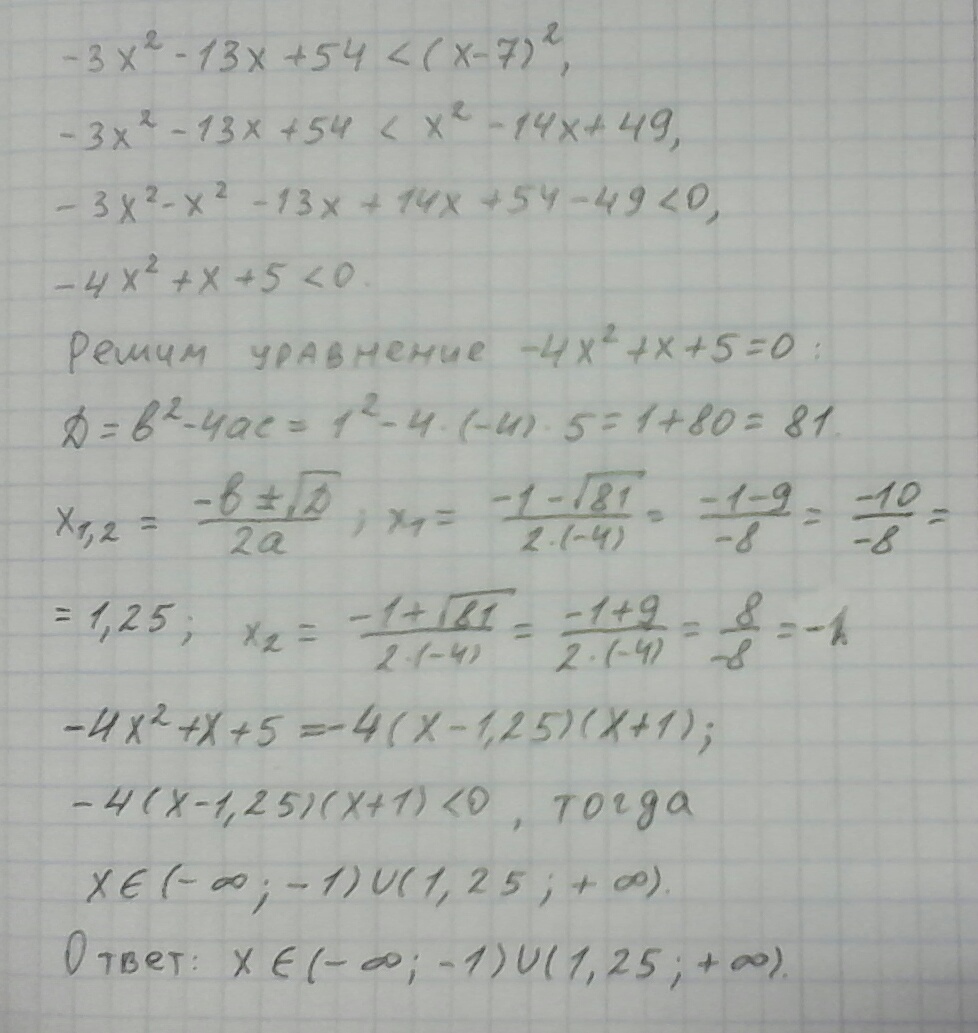 -3x² -13x +54 < (x-7)²,
-3x² -13x +54 < x² -14x+49,
-3x²-x² -13x +14x +54-49<0,
-4x² +x +5 <0.
Решим уравнение -4x²+x+5=0:
D = b²-4ac = 1²-4·(-4)·5=1+80=81.
x₁,₂ = (-b±√D)/(2a); x₁= (-1-√81)/(2·(-4)) = (-1-9)/(-8) = (-10)/(-8) =
= 1,25; x₂ = (-1+√81)/(2·(-4)) = (-1+9)/(2·(-4)) = 8/(-8) = -1
-4x²+x+5 =-4(x-1,25)(x+1);
-4(x-1,25)(x+1)<0, тогда
x∈(-∞; -1)∪(1,25; +∞).
Ответ: x∈(-∞; -1)∪(1,25; +∞).